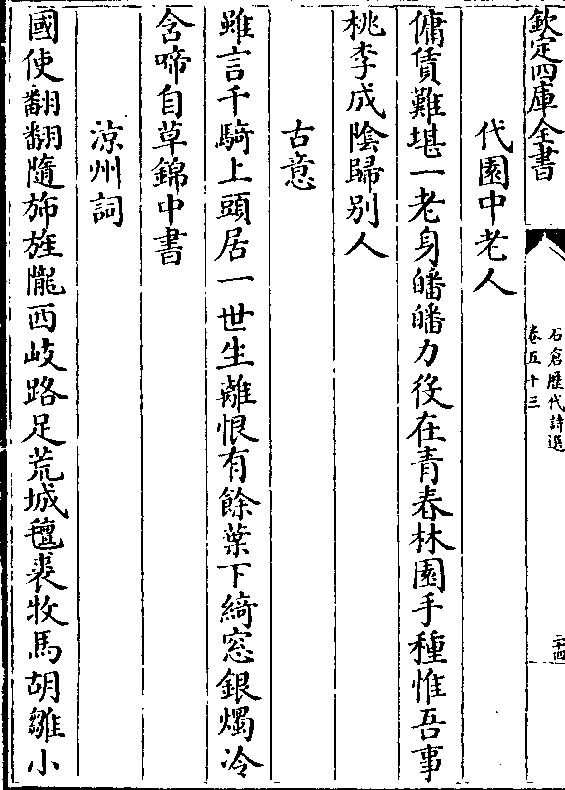 欽定四庫全書
石倉歷代詩選
卷五十三
二十四
代園中老人
傭賃難堪一老身皤皤力役在青春林園手種惟吾事
桃李成陰歸别人
古意
雖言千騎上頭居一世生離恨有餘葉下綺窓銀燭冷
含啼自草錦中書
涼州詞
國使翻翻隨斾旌隴西岐路足荒城氊裘牧馬胡雛小